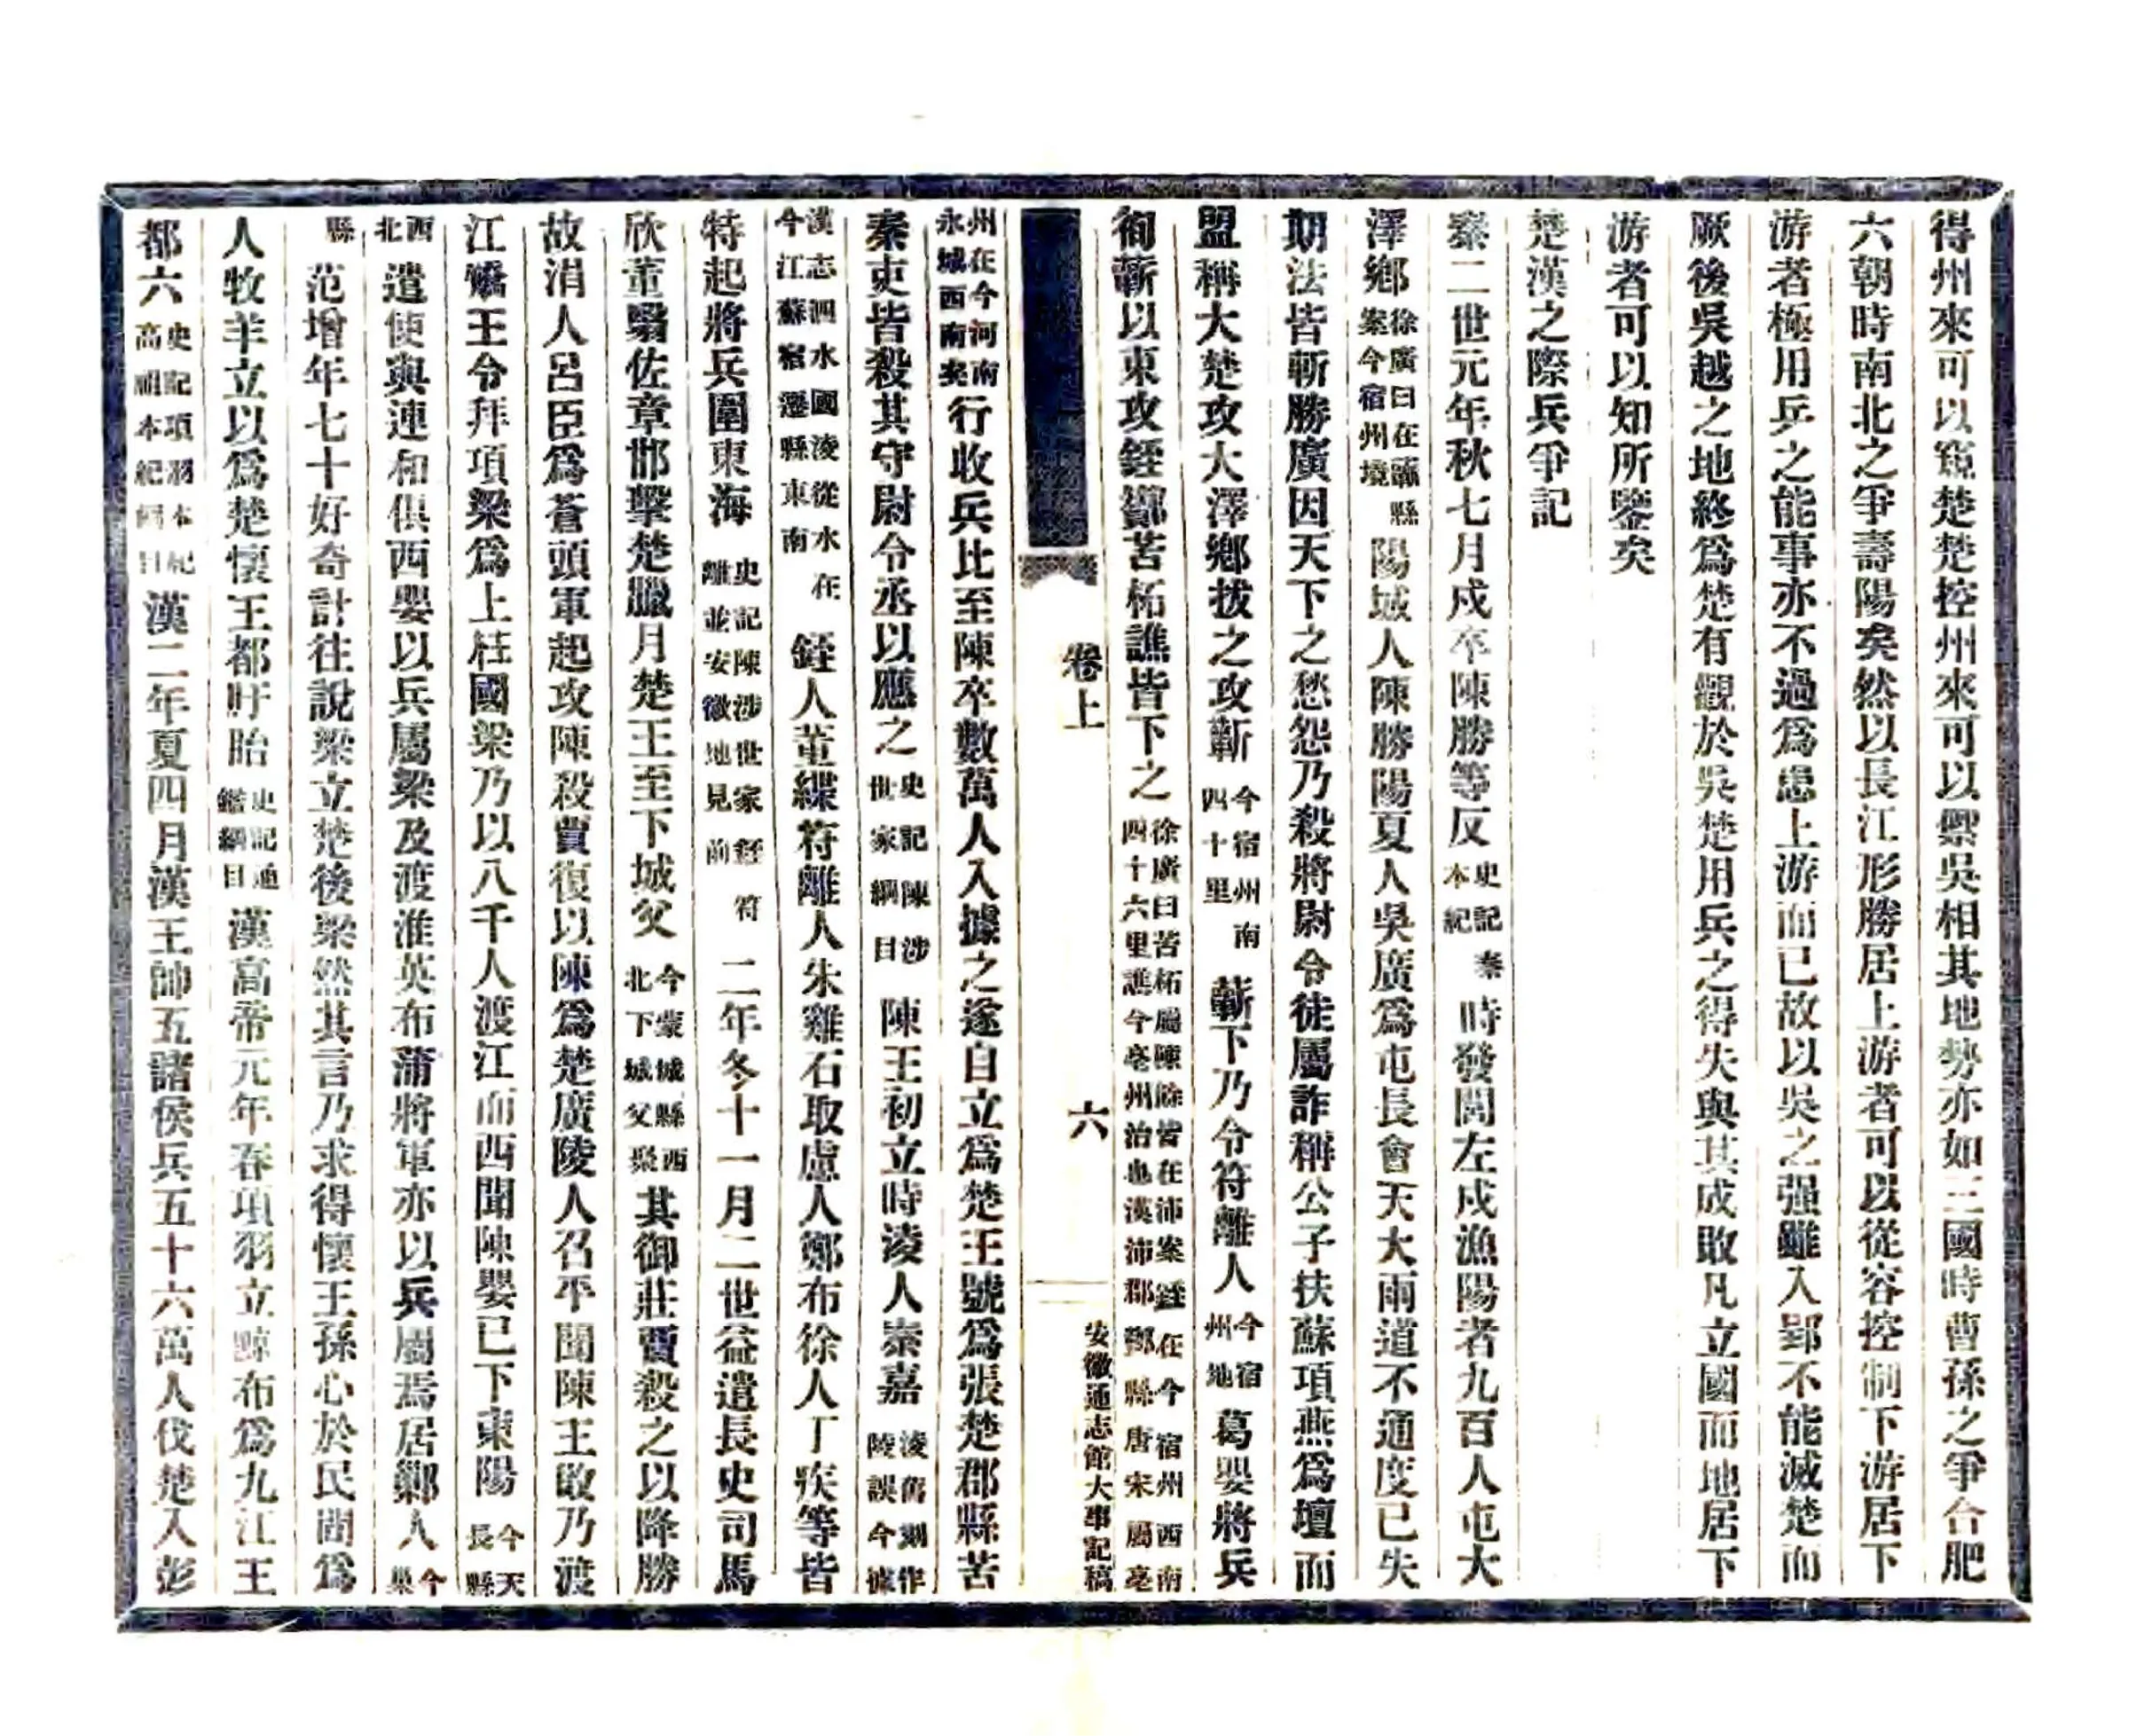 得州來可以窺楚楚控州來可以禦吳相其地勢亦如三國時曹孫之爭合肥
六朝時南北之爭壽陽矣然以長江形勝居上游者可以從容控制下游居下
游者極用兵之能事亦不過爲患上游而已故以吳之强雖入郢不能滅楚而
厥後吳越之地終爲楚有觀於吳楚用兵之得失與其成敗凡立國而地居下
游者可以知所鑒矣
楚漢之際兵爭記
秦二世元年秋七月戍卒陳勝等反史記秦本紀時發閭左戍漁陽者九百人屯大
澤鄉徐廣曰在蘄縣案今宿州境陽城人陳勝陽夏人吳廣爲屯長會天大雨道不通度已失
期法皆斬勝廣因天下之愁怨乃殺將尉令徒屬詐稱公子扶蘇項燕爲壇而
盟稱大楚攻大澤鄉拔之攻蘄今宿州南四十里蘄下乃令符離人今宿州地葛嬰將兵
徇蘄以東攻銍酇苦柘譙皆下之徐廣曰苦柘屬陳餘皆在沛案銍在今宿州西南四十六里譙今亳州治也漢沛郡酇縣唐宋屬亳
卷上
六
安徽通志館大事記稿
州在今河南永城西南矣行收兵比至陳卒數萬人入據之遂自立爲楚王號爲張楚郡縣苦
秦吏皆殺其守尉令丞以應之史記陳涉世家綱目陳王初立時淩人秦嘉淩舊刻作陵誤今據
漢志泗水國淩從水在今江蘇宿遷縣東南銍人董緤符離人朱雞石取慮人鄭布徐人丁疾等皆
特起將兵圍東海史記陳涉世家銍符離並安徽地見前二年冬十一月二世益遣長史司馬
欣董翳佐章邯擊楚臘月楚王至下城父今蒙城縣西北下城父聚其御莊賈殺之以降勝
故涓人呂臣爲蒼頭軍起攻陳殺賈復以陳爲楚廣陵人召平聞陳王敗乃渡
江矯王令拜項梁爲上柱國梁乃以八千人渡江而西聞陳嬰已下東陽今天長縣
西北遣使與連和俱西嬰以兵屬梁及渡淮英布蒲將軍亦以兵屬焉居鄛人今巢
縣范增年七十好奇計往說梁立楚後梁然其言乃求得懷王孫心於民閒爲
人牧羊立以爲楚懷王都盱眙史記通鑑綱目漢高帝元年春項羽立黥布爲九江王
都六史記項羽本紀高祖本紀綱目漢二年夏四月漢王帥五諸侯兵五十六萬人伐楚入彭